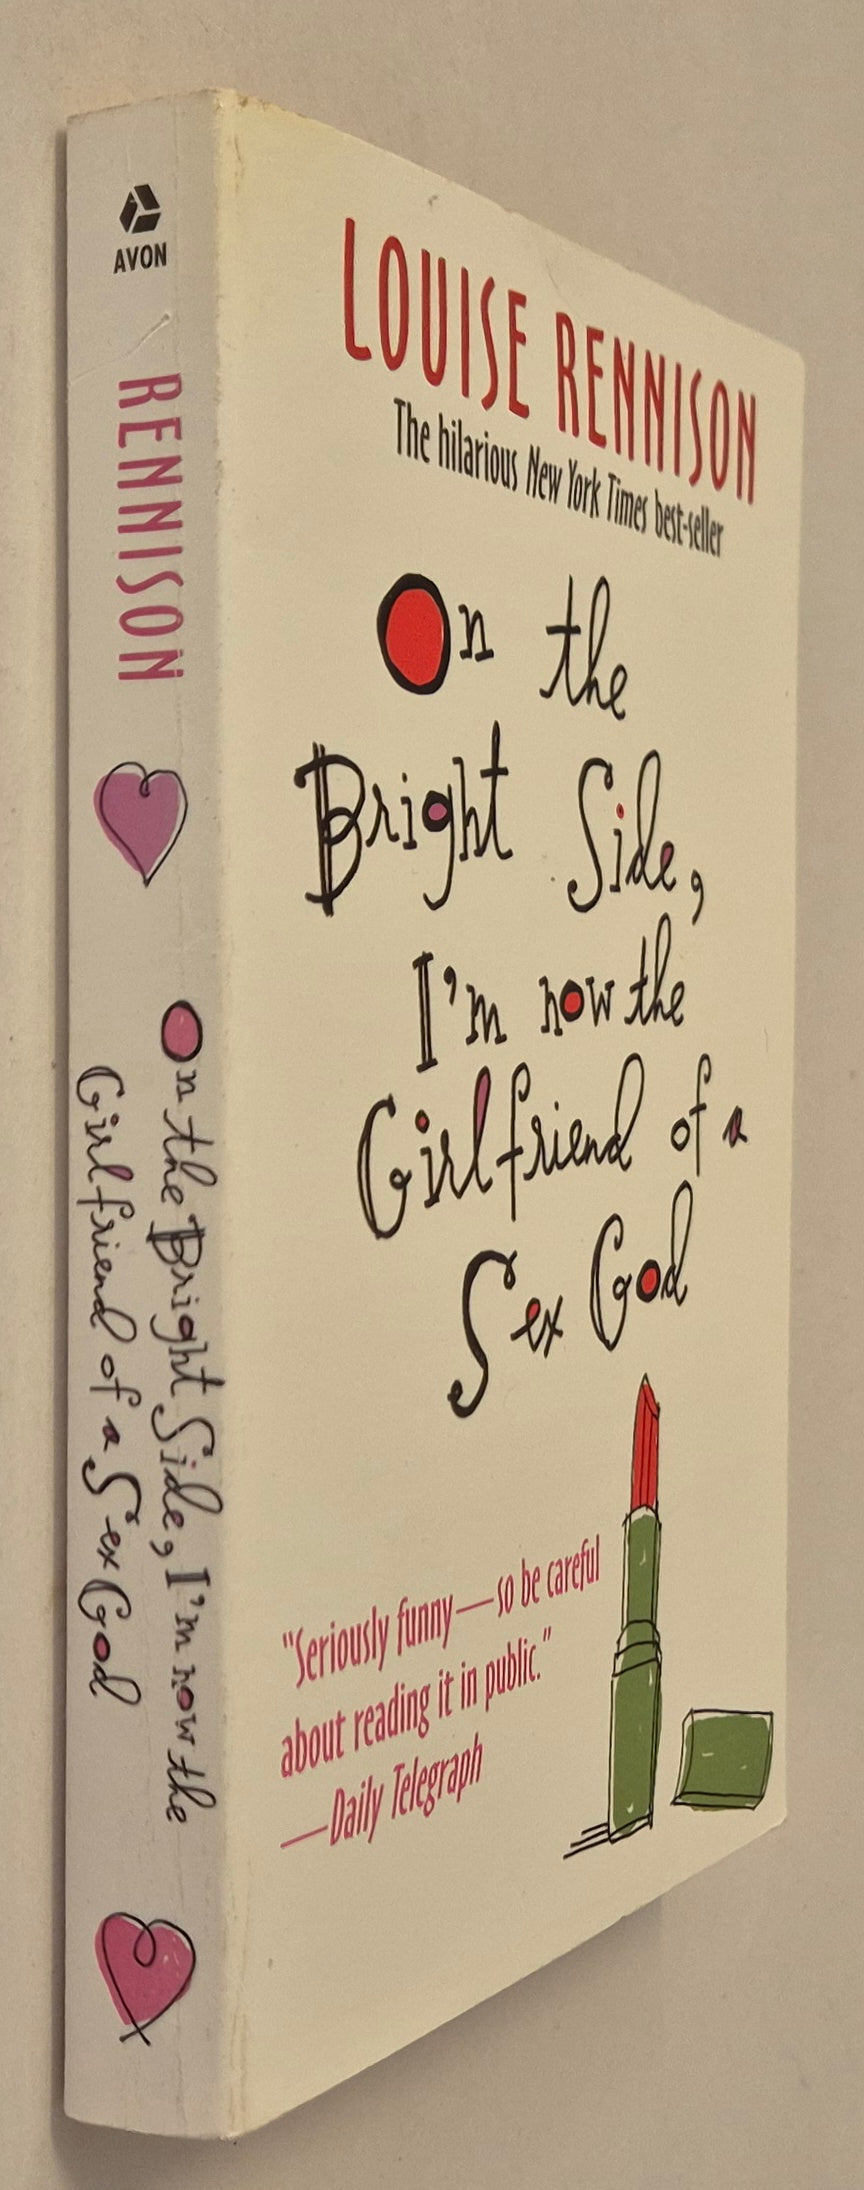 AVON
RENNISON
On the Bright Side, I'm now the
Girlfriend of a Sex God
LOUISE RENNISON
The hilarious New York Times best-seller
On the
Bright Side,
I'm now the
Girlfriend of a
Sex God
"Seriously funny—so be careful
about reading it in public."
—Daily Telegraph